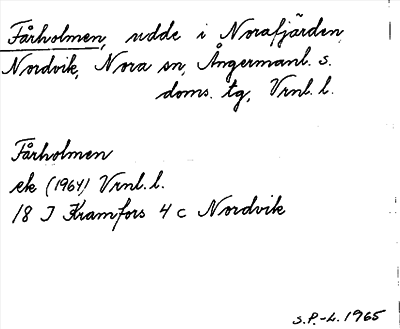 Fårholmen, udde i Norafjärden,
Nordvik, Nora sn, Ångermanl. s.
doms. tg, Vrnl. l.
Fårholmen
ek (1964) Vrnl. l.
18 J Kramfors 4 c Nordvik
S.P.-L. 1965